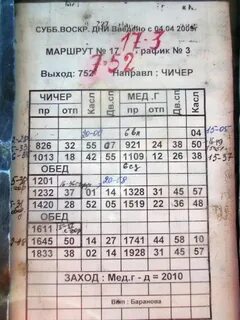 СУББ.ВОСКР. ДНИ Введено с 04.04 2005г
МАРШРУТ № 17 график № 3
17-3
Выход: 752 Направл : ЧИЧЕР
7-52
ЧИЧЕР Касл Дв.сп МЕД .Г Дв.сп Касл
пр отп пр отп
20-00 04 15-05
826 32 55 07 921 24 38 50
1013 18 42 55 1109 12 26 38
ОБЕД
1201
1232 37 01 14 1328 31 45 57
1420 28 52 05 1519 22 36 48
ОБЕД
1611
1645 50 14 27 1741 44 58 10
1833 38 02 14 1928 31 45 57
ЗАХОД : Мед.г - д = 2010
Вып : Баранова